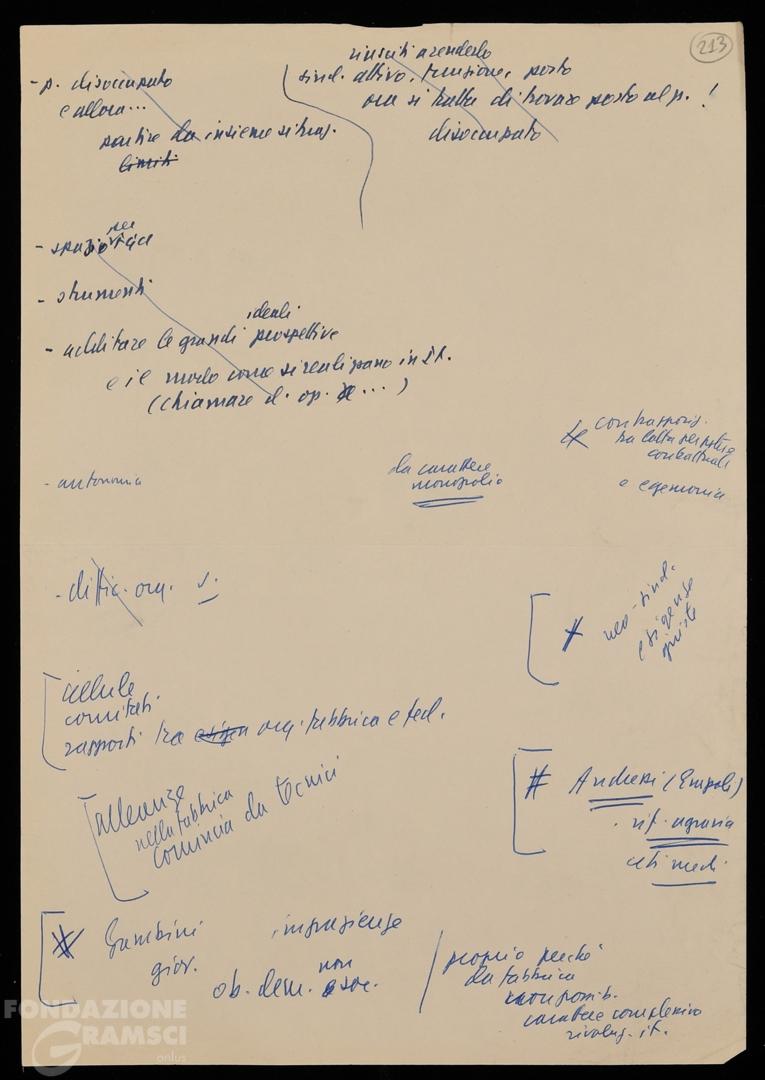 213
- p. disoccupato
e allora...
partire da insieme situaz.
limiti
riusciti a renderlo
sind. attivo, funzione, posto
ora si tratta di trovare posto al p. !
disoccupato
per
- spazio
- strumenti
ideali
- additare le grandi prospettive
e il modo come si realizzano in It.
(chiamare d. op. ...)
- autonomia
da carattere
monopolio
contrappos.
tra lotta per potere
contrattuale
e egemonia
- diffic. org. s.
neo-sind.
esigenze
giuste
cellule
comitati
rapporti tra esigen org. fabbrica e fed.
alleanze
nella fabbrica
comincia da tecnici
# Andreini (Empoli)
rif. agraria
ceti medi
Gambini impazienze
giov.
non
ob. dem. soc.
proprio perché
da fabbrica
non possib.
carattere complessivo
rivoluz. it.
FONDAZIONE
GRAMSCI
onlus